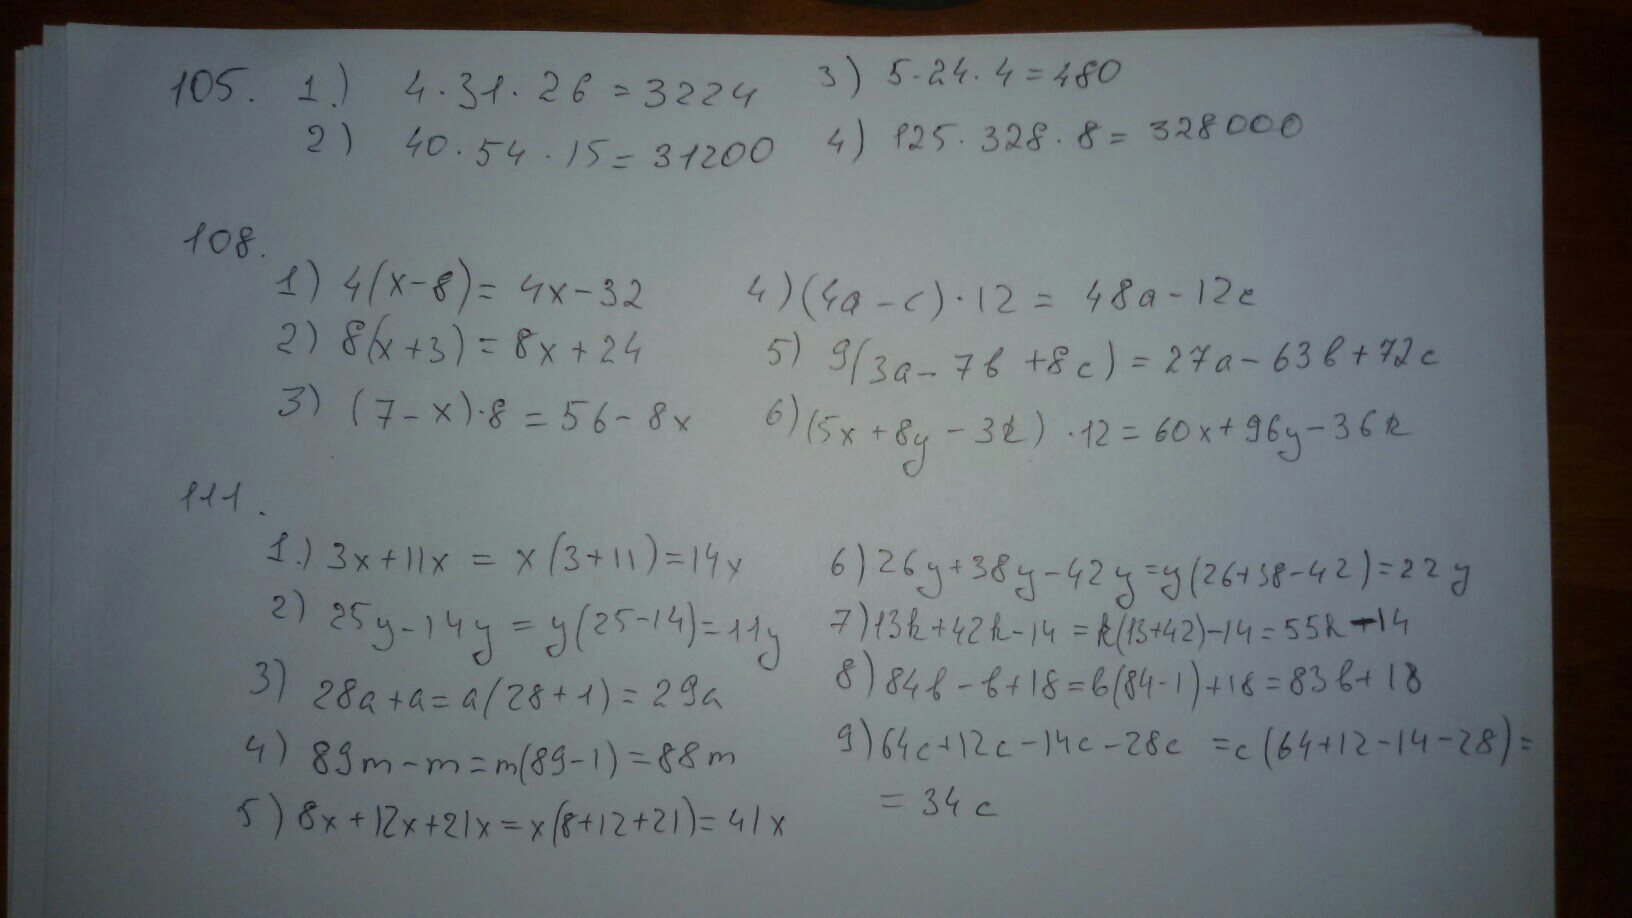 105. 1.) 4·31·26=3224 3) 5·24·4=480
2) 40·54·15=31200 4) 125·328·8=328000
108.
1) 4(x-8)=4x-32 4) (4a-c)·12=48a-12c
2) 8(x+3)=8x+24 5) 9(3a-7b+8c)=27a-63b+72c
3) (7-x)·8=56-8x 6) (5x+8y-3k)·12=60x+96y-36k
111.
1.) 3x+11x=x(3+11)=14x 6) 26y+38y-42y=y(26+38-42)=22y
2) 25y-14y=y(25-14)=11y 7) 13k+42k-14=k(13+42)-14=55k-14
3) 28a+a=a(28+1)=29a 8) 84b-b+18=b(84-1)+18=83b+18
4) 89m-m=m(89-1)=88m 9) 64c+12c-14c-28c=c(64+12-14-28)=
5) 8x+12x+21x=x(8+12+21)=41x =34c